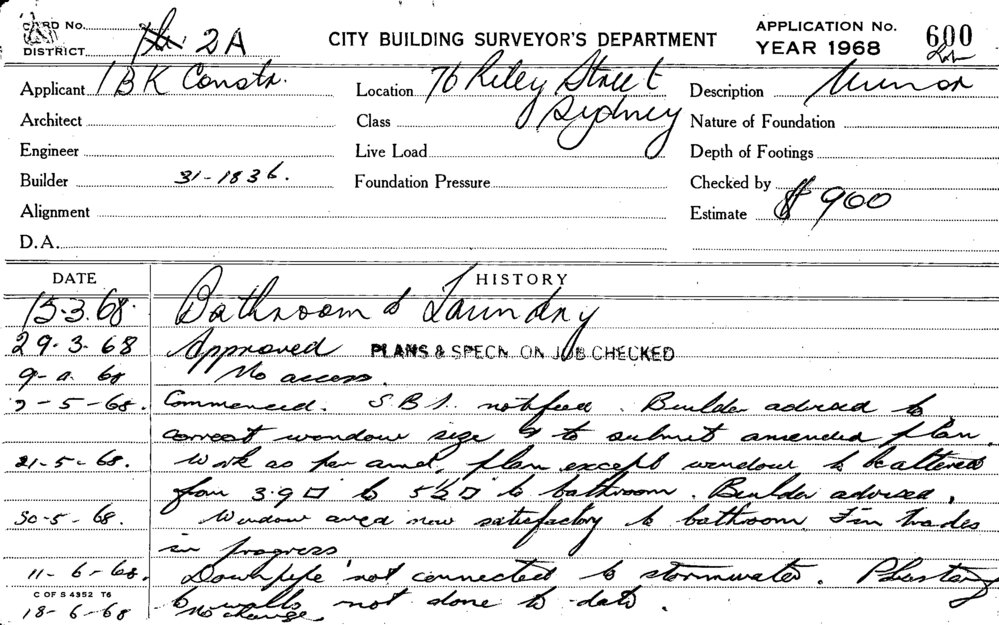 CARD No.
DISTRICT 2A
CITY BUILDING SURVEYOR'S DEPARTMENT
APPLICATION No. 600
YEAR 1968
Applicant BK Constr.
Location 76 Riley Street
Sydney
Description Minor
Architect
Class
Nature of Foundation
Engineer
Live Load
Depth of Footings
Builder 31-1836.
Foundation Pressure
Checked by
Alignment
Estimate $ 900
D.A.
DATE HISTORY
15.3.68. Bathroom & Laundry
29.3.68 Approved PLANS & SPECN. ON JOB CHECKED
68 No access.
-5-68. Commenced. S.B.I. notified. Builder advised to
correct window size & to submit amended plan.
21-5-68. Work as per amd. plan except window to be altered
from 3.9□' to 5½□' to bathroom. Builder advised.
30-5-68. Window area now satisfactory to bathroom Fin trades
in progress
11-6-68. Downpipe not connected to stormwater. Plastering
C OF S 4352 T6
to walls not done to date.
18-6-68 No change.